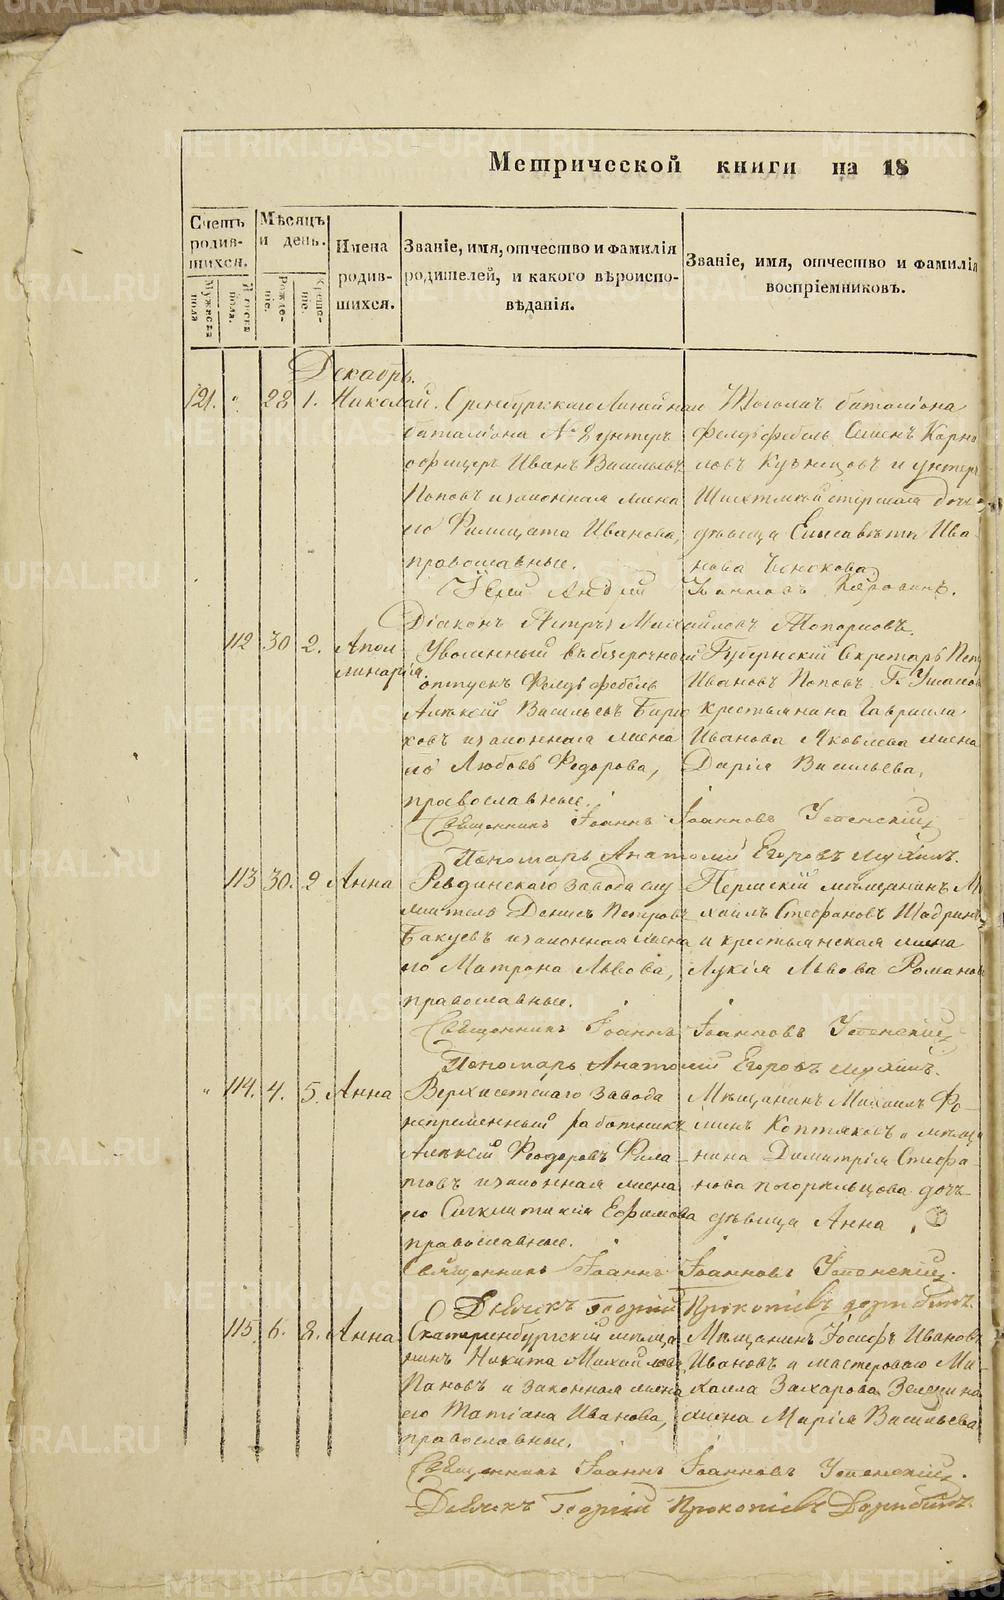 Метрической книги на 18
Счетъ родив-шихся.
Мѣсяцъ и день.
Имена родив-шихся.
Званіе, имя, отчество и фамилія родителей, и какого вѣроиспо-вѣданія.
Званіе, имя, отчество и фамилія воспріемниковъ.
Мужеска пола
Женска пола.
Рожде-ніе.
Креще-ніе.
Декабрь.
121. " 28 1. Николай. Оренбургскаго Линейнаго
баталіона № 8 унтеръ
офицеръ Иванъ Васильевъ
Поповъ и законная жена
его Иванова,
православные.
Тогожъ баталіона
Фельдфебель Семенъ Карпо
ловъ Кузнецовъ и унтеръ
дочь
дѣвица Елисавета Ива
нова
Іерей Андрей Іоанновъ
Діаконъ Петръ Михайловъ Топорковъ.
112 30 2. Апол
линарія. Уволенный въ безсрочный
отпускъ Фельдфебель
Алексій Васильевъ Бирю
ковъ и законная жена
его Любовь Федорова,
православные.
Губернскій Секретарь Петръ
Ивановъ Поповъ
Крестьянина Гавріила
Иванова Яковлева жена
Дарія Васильева,
Священникъ Іоаннъ Іоанновъ Успенскій
Пономарь Анатолій Егоровъ Мухинъ.
113 30. 2 Анна Ревдинскаго завода слу
житель Денисъ Петровъ
Бакуевъ и законная жена
его Матрона Львова,
православные.
Пермскій мѣщанинъ Ми
хаилъ Стефановъ Шадринъ
и крестьянская жена
Лукія Львова Романов
Священникъ Іоаннъ Іоанновъ Успенскій
Пономарь Анатолій Егоровъ Мухинъ.
" 114. 4. 5. Анна Верхисетскаго завода
непременный работникъ
Алексій Феодоровъ Фила
товъ и законная жена
его Синклитикія Ефимова
православные.
Мѣщанинъ Михаилъ Фо-
минъ Коптяковъ и мѣща
нина Димитрія Стефа-
нова Погорѣльцова дочь
дѣвица Анна
Священникъ Іоаннъ Іоанновъ Успенскій.
Дьячекъ Георгій Прокопіевъ
115. 6. 8. Анна Екатеринбургскій мѣща
нинъ Никита Михайловъ
Пановъ и законная жена
его Татіана Иванова,
православные.
Мѣщанинъ Іосифъ Ивановъ
Ивановъ и мастероваго Ми-
хаила Захарова Зеленина
жена Марія Васильева
Священникъ Іоаннъ Іоанновъ Успенскій.
Дьячекъ Георгій Прокопіевъ
METRIKI.GASO-URAL.RU